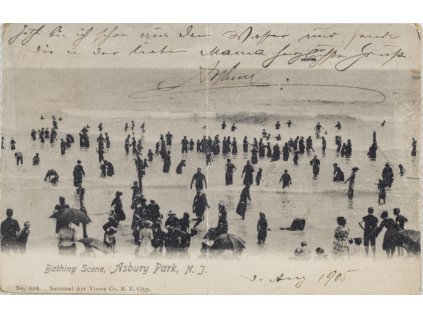 Jetzt bin ich schon aus dem Wasser und sende
dir u. der lieben Mama herzlichste Grüße
Arthur
Bathing Scene, Asbury Park, N. J.
2. Aug 1905
No. 846. National Art Views Co., N. Y. City.